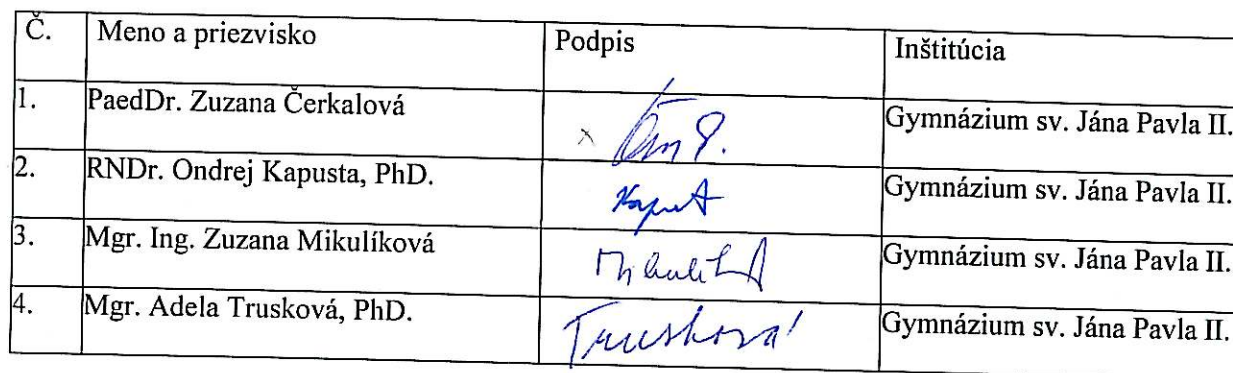 Č. Meno a priezvisko Podpis Inštitúcia
1. PaedDr. Zuzana Čerkalová Gymnázium sv. Jána Pavla II.
2. RNDr. Ondrej Kapusta, PhD. Gymnázium sv. Jána Pavla II.
3. Mgr. Ing. Zuzana Mikulíková Gymnázium sv. Jána Pavla II.
4. Mgr. Adela Trusková, PhD. Trusková Gymnázium sv. Jána Pavla II.